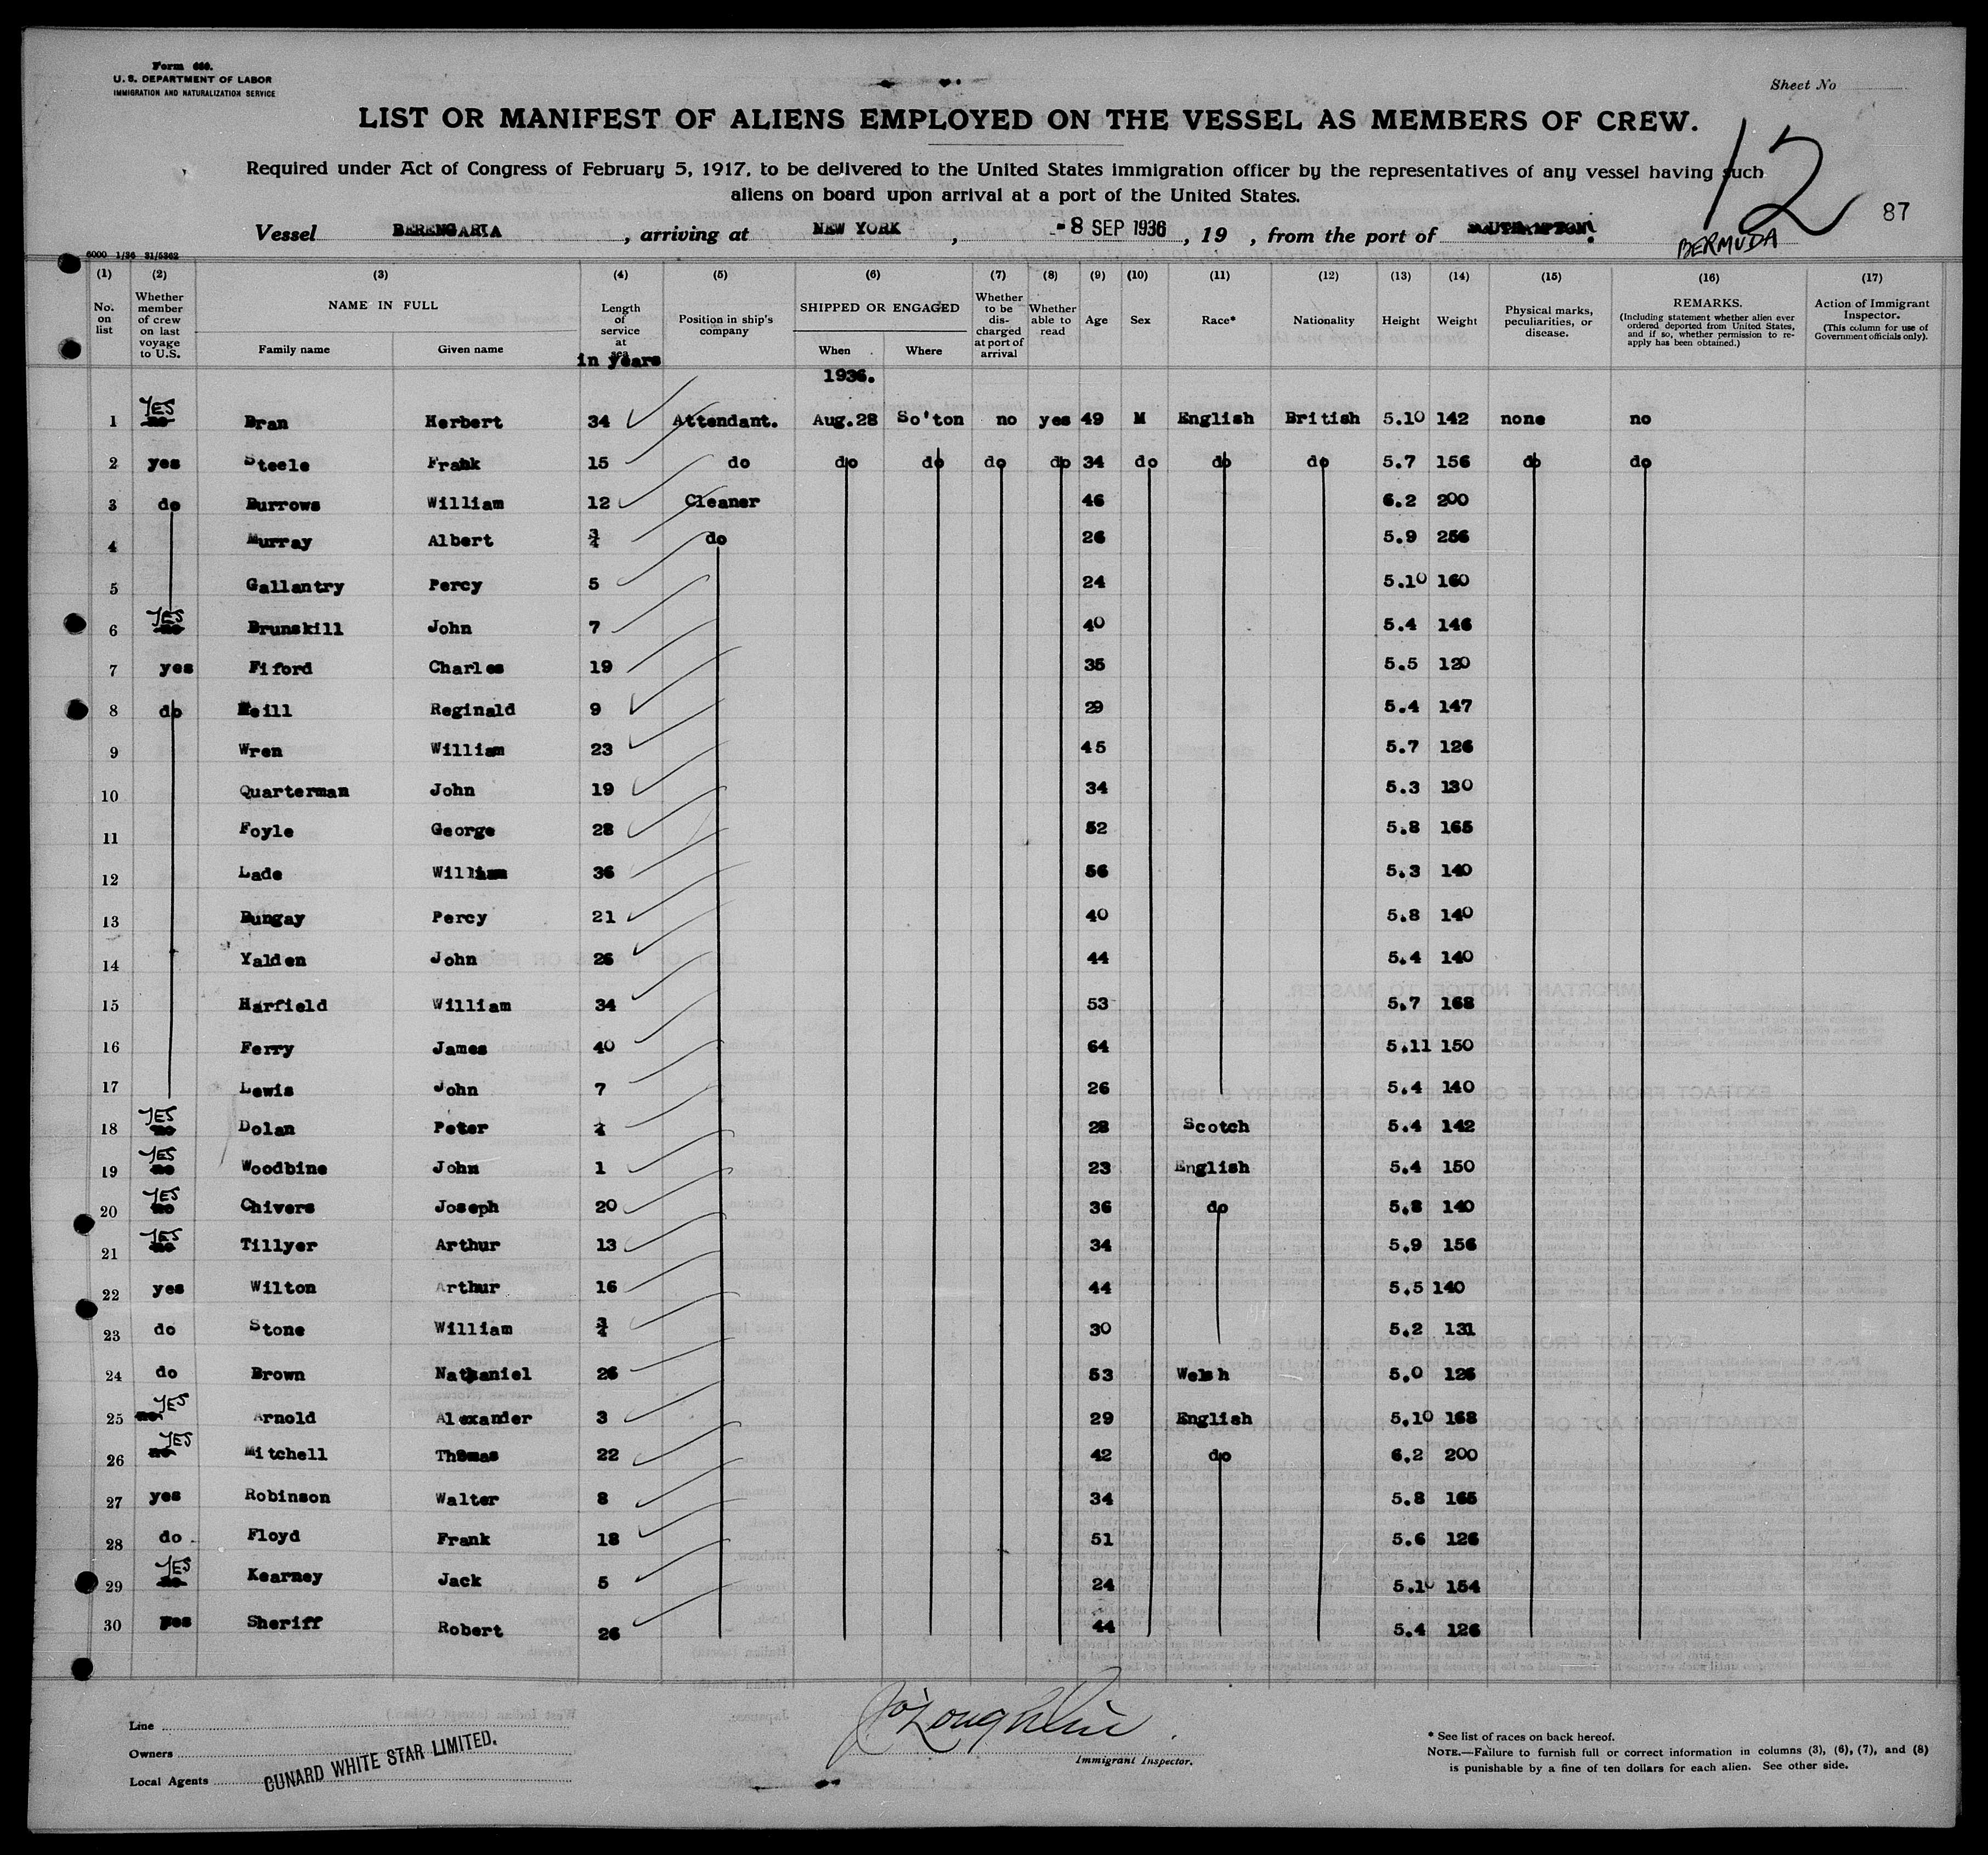 Form 680.
U. S. DEPARTMENT OF LABOR
IMMIGRATION AND NATURALIZATION SERVICE
Sheet No
LIST OR MANIFEST OF ALIENS EMPLOYED ON THE VESSEL AS MEMBERS OF CREW.
12
Required under Act of Congress of February 5, 1917, to be delivered to the United States immigration officer by the representatives of any vessel having such
aliens on board upon arrival at a port of the United States.
87
Vessel BERENGARIA , arriving at NEW YORK , -8 SEP 1936 , 19 , from the port of SOUTHAMPTON.
BERMUDA
6000 1/36 31/5362
(1) (2) (3) (4) (5) (6) (7) (8) (9) (10) (11) (12) (13) (14) (15) (16) (17)
No. on list
Whether member of crew on last voyage to U.S.
NAME IN FULL
Family name Given name
Length of service at sea
in years
Position in ship's company
SHIPPED OR ENGAGED
When Where
Whether to be discharged at port of arrival
Whether able to read
Age
Sex
Race*
Nationality
Height
Weight
Physical marks, peculiarities, or disease.
REMARKS.
(Including statement whether alien ever ordered deported from United States, and if so, whether permission to re-apply has been obtained.)
Action of Immigrant Inspector.
(This column for use of Government officials only).
1936.
1 YES no Bran Herbert 34 Attendant. Aug.28 So'ton no yes 49 M English British 5.10 142 none no
2 yes Steele Frank 15 do do do do do 34 do do do 5.7 156 do do
3 do Burrows William 12 Cleaner 46 6.2 200
4 Murray Albert 3/4 do 26 5.9 256
5 Gallantry Percy 5 24 5.10 160
6 YES no Brunskill John 7 40 5.4 146
7 yes Fiford Charles 19 35 5.5 120
8 do Neill Reginald 9 29 5.4 147
9 Wren William 23 45 5.7 126
10 Quarterman John 19 34 5.3 130
11 Foyle George 28 52 5.8 165
12 Lade William 36 56 5.3 140
13 Bungay Percy 21 40 5.8 140
14 Yalden John 26 44 5.4 140
15 Harfield William 34 53 5.7 168
16 Ferry James 40 64 5.11 150
17 Lewis John 7 26 5.4 140
18 YES no Dolan Peter 28 Scotch 5.4 142
19 YES no Woodbine John 1 23 English 5.4 150
20 YES no Chivers Joseph 20 36 do 5.8 140
21 YES no Tillyer Arthur 13 34 5.9 156
22 yes Wilton Arthur 16 44 5.5 140
23 do Stone William 3/4 30 5.2 131
24 do Brown Nathaniel 26 53 Welsh 5.0 126
25 no YES Arnold Alexander 3 29 English 5.10 168
26 YES no Mitchell Thomas 22 42 do 6.2 200
27 yes Robinson Walter 8 34 5.8 165
28 do Floyd Frank 18 51 5.6 126
29 YES no Kearney Jack 5 24 5.10 154
30 yes Sheriff Robert 26 44 5.4 126
Line
Owners
Local Agents
CUNARD WHITE STAR LIMITED.
J O'Loughlin
Immigrant Inspector.
* See list of races on back hereof.
NOTE.—Failure to furnish full or correct information in columns (3), (6), (7), and (8)
is punishable by a fine of ten dollars for each alien. See other side.